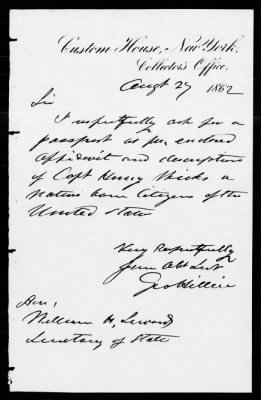 Custom House, New York,
Collector's Office,
Augt 27 1862
Sir
I respectfully ask for a
passport as per enclosed
affidavit and description
of Capt Henry Hicks a
native born Citizen of the
United State
Very Respectfully
your Obt Svt
Hon,
William H, Seward
Secretary of State